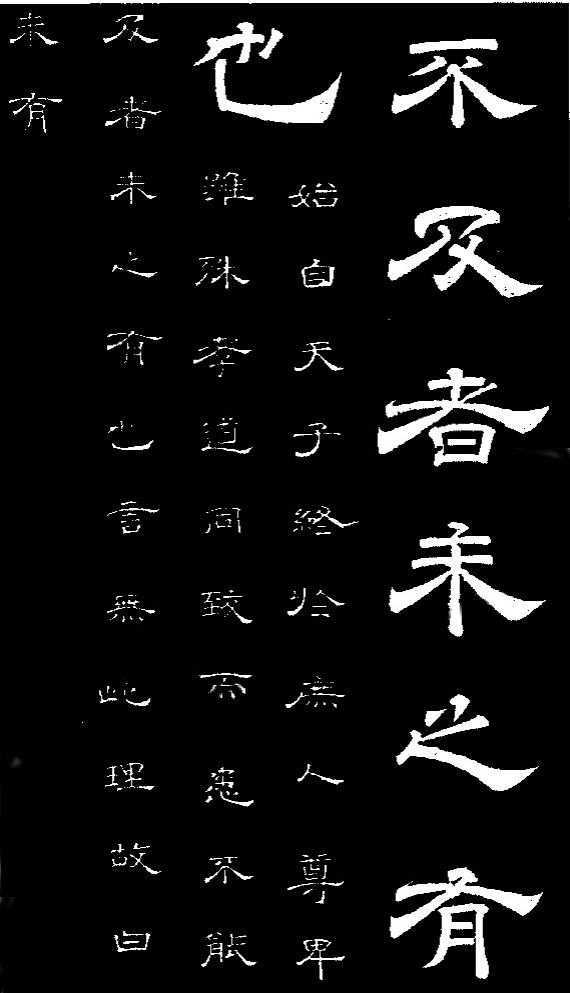 不及者未之有
也
始自天子終於庶人尊卑
雖殊孝道同致而患不能
及者未之有也言無此理故曰
未有